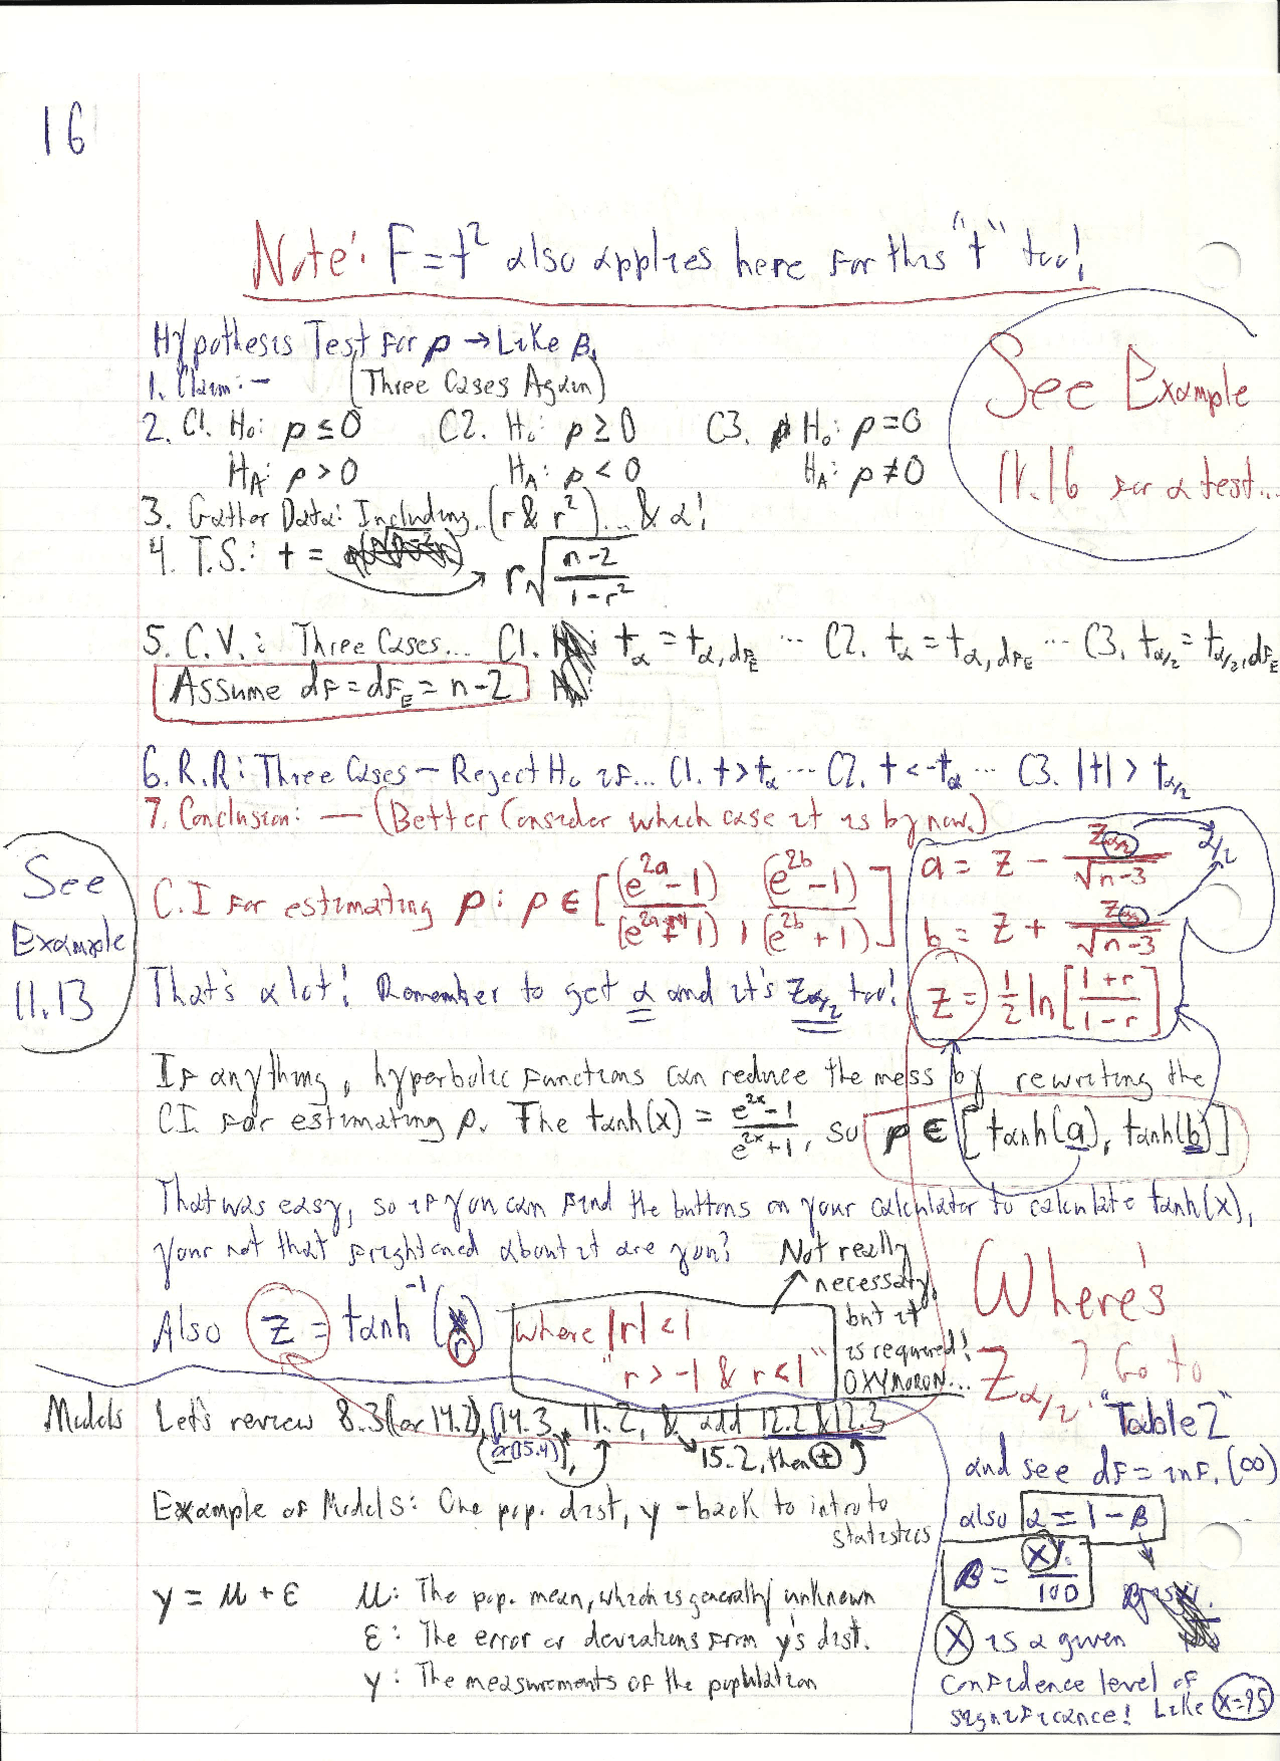 16
Note: F = t² also applies here for this "t" too!
Hypothesis Test for ρ → Like β₁
1. Claim: — (Three Cases Again)
2. C1. H₀: ρ ≤ 0 C2. H₀: ρ ≥ 0 C3. H₀: ρ = 0
H_A: ρ > 0 H_A: ρ < 0 H_A: ρ ≠ 0
See Example
11.16 for a test...
3. Gather Data: Including (r & r²)... & α!
4. T.S.: t = r√((n-2)/(1-r²))
5. C.V.: Three Cases... C1. t_α = t_α,df_E ... C2. t_α = t_α,df_E ... C3. t_α/2 = t_α/2,df_E
Assume df = df_E = n-2
6. R.R: Three Cases — Reject H₀ if... C1. t > t_α ... C2. t < -t_α ... C3. |t| > t_α/2
7. Conclusion: — (Better Consider which case it is by now.)
See
Example
11.13
C.I for estimating ρ: ρ ∈ [(e^2a - 1)/(e^2a + 1), (e^2b - 1)/(e^2b + 1)]
a = z - z_α/2/√(n-3) α/2
b = z + z_α/2/√(n-3)
z = ½ ln[(1+r)/(1-r)]
That's a lot! Remember to get α and it's z_α/2 too!
If anything, hyperbolic functions can reduce the mess by rewriting the
CI for estimating ρ. The tanh(x) = (e^2x - 1)/(e^2x + 1), so ρ ∈ [tanh(a), tanh(b)]
That was easy, so if you can find the buttons on your calculator to calculate tanh(x),
your not that frightened about it are you?
Also z = tanh⁻¹(r)
where |r| < 1
"r > -1 & r < 1"
Not really
necessary,
but it
is required!
OXYMORON...
Where's
z_α/2? Go to
"Table 2"
and see df = inf. (∞)
also α = 1 - β
β = x%/100
x is a given
confidence level of
significance! Like x=95
Models Let's review 8.3 (or 14.2), (14.3, 11.2, & add 12.2 & 12.3
(or 15.4)], 15.2, then (+)
Example of Models: One pop. dist, y - back to intro to
statistics
y = μ + ε μ: The pop. mean, which is generally unknown
ε: The error or deviations from y's dist.
y: The measurements of the population